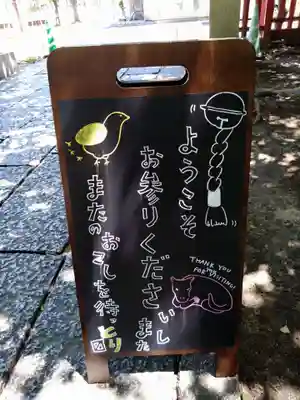 ようこそ
お参りくださいました
またのお こしを待っとり
THANK YOU
FOR VISITING!